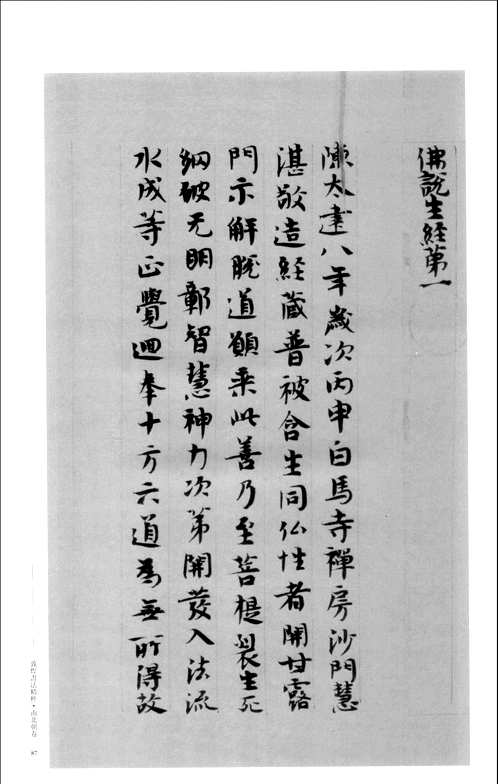 佛說生經第一
陳太建八年歲次丙申白馬寺禪房沙門慧
湛敬造經藏普被含生同仏性者開甘露
門示解脫道願乘此善乃至菩提裂生死
網破无明鄣智慧神力次第開發入法流
水成等正覺迴奉十方六道為無所得故
敦煌書法精粹・南北朝卷
87